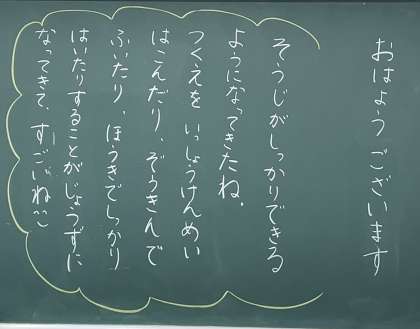 おはようございます
そうじがしっかりできる
ようになってきたね。
つくえを いっしょうけんめい
はこんだり、ぞうきんで
ふいたり、ほうきでしっかり
はいたりすることがじょうずに
なってきて、すごいね